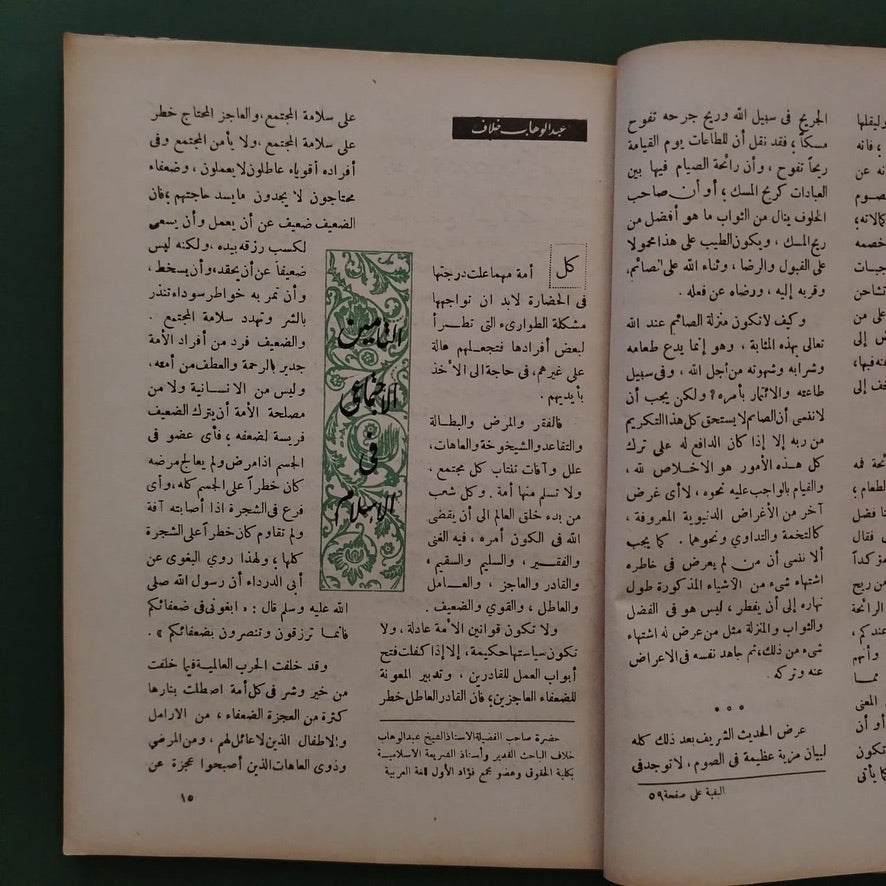 الجريح فى سبيل الله وريح جرحه تفوح
مسكاً ؛ فقد نقل أن للطاعات يوم القيامة
ريحاً تفوح ، وأن رائحة الصيام فيها بين
العبادات كريح المسك ؛ أو أن صاحب
الخلوف ينال من الثواب ما هو أفضل من
ريح المسك ، ويكون الطيب على هذا محمولا
على القبول والرضا ، وثناء الله على الصائم،
وقربه إليه ، ورضاه عن فعله .
وكيف لا تكون منزلة الصائم عند الله
تعالى بهذه المثابة ، وهو إنما يدع طعامه
وشرابه وشهوته من أجل الله ، وفى سبيل
طاعته والائتمار بأمره ? ولكن يجب أن
لا ننسى أن الصائم لا يستحق كل هذا التكريم
من ربه إلا إذا كان الدافع له على ترك
كل هذه الأمور هو الاخلاص لله ،
والقيام بالواجب عليه نحوه ، لا أى غرض
آخر من الأغراض الدنيوية المعروفة ،
كالتخمة والتداوي ونحوها . كما يجب
ألا ننسى أن من لم يعرض فى خاطره
اشتهاء شىء من الأشياء المذكورة طول
نهاره إلى أن يفطر ، ليس هو فى الفضل
والثواب والمنزلة مثل من عرض له اشتهاء
شىء من ذلك، ثم جاهد نفسه فى الاعراض
عنه وتركه .
عرض الحديث الشريف بعد ذلك كله
لبيان مزية عظيمة فى الصوم ، لا توجد فى
البقية على صفحة ٥٩
عبد الوهاب خلاف
التأمين
الاجتماعى
فى
الإسلام
كل أمة مهما علت درجتها
فى الحضارة لابد ان تواجهها
مشكلة الطوارىء التى تطرأ
لبعض أفرادها فتجعلهم عالة
على غيرهم ، فى حاجة الى الأخذ
بأيديهم .
فالفقر والمرض والبطالة
والتقاعد والشيخوخة والعاهات،
علل وآفات تنتاب كل مجتمع ،
ولا تسلم منها أمة . وكل شعب
من بدء خلق العالم الى أن يقضى
الله فى الكون أمره ، فيه الغنى
والفقير ، والسليم والسقيم ،
والقادر والعاجز ، والعامل
والعاطل ، والقوي والضعيف .
ولا تكون قوانين الأمة عادلة ، ولا
تكون سياستها حكيمة ، إلا إذا كفلت فتح
أبواب العمل للقادرين ، وتدبير المعونة
للضعفاء العاجزين ؛ فأن القادر العاطل خطر
حضرة صاحب الفضيلة الاستاذ الشيخ عبد الوهاب
خلاف الباحث القدير وأستاذ الشريعة الاسلامية
بكلية الحقوق وعضو مجمع فؤاد الأول للغة العربية
على سلامة المجتمع، والعاجز المحتاج خطر
على سلامة المجتمع ، ولا يأمن المجتمع وفى
أفراده أقوياء عاطلون لا يعملون ، وضعفاء
محتاجون لا يجدون ما يسد حاجتهم ؛ فان
الضعيف ضعيف عن أن يعمل وأن يسعى
لكسب رزقه بيده ، ولكنه ليس
ضعيفاً عن أن يحقد، وأن يسخط ،
وأن تمر به خواطر سوداء تنذر
بالشر وتهدد سلامة المجتمع .
والضعيف فرد من أفراد الأمة
جدير بالرحمة والعطف من أمته ،
وليس من الانسانية ولا من
مصلحة الأمة أن يترك الضعيف
فريسة لضعفه ؛ فأى عضو فى
الجسم اذا مرض ولم يعالج مرضه
كان خطراً على الجسم كله، وأى
فرع فى الشجرة اذا أصابته آفة
ولم تقاوم كان خطراً على الشجرة
كلها ؛ ولهذا روي البغوى عن
أبى الدرداء أن رسول الله صلى
الله عليه وسلم قال : « ابغونى فى ضعفائكم
فانما ترزقون وتنصرون بضعفائكم » .
وقد خلفت الحرب العالمية فيما خلفت
من خير وشر فى كل أمة اصطلت بنارها
كثرة من العجزة الضعفاء ، من الأرامل
والاطفال الذين لا عائل لهم ، ومن المرضي
وذوى العاهات الذين أصبحوا عجزة عن
١٥